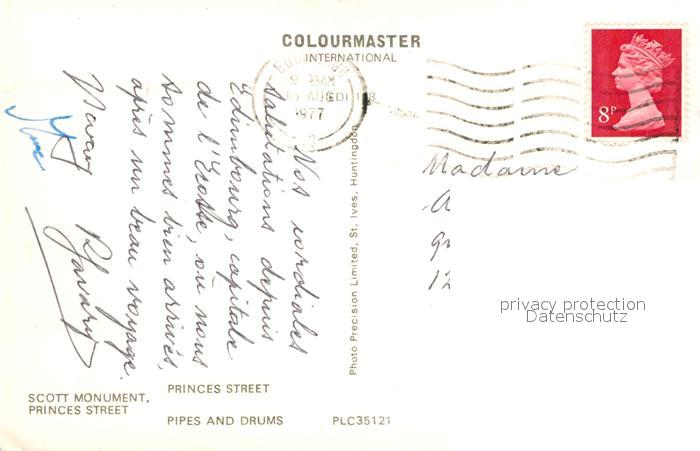 COLOURMASTER
INTERNATIONAL
EDINBURGH
9 30AM
15 AUG
1977
8P
Nos cordiales
salutations depuis
Edimbourg, capitale
de l'Ecosse, où nous
sommes bien arrivés,
après un beau voyage.
Photo Precision Limited, St. Ives, Huntingdon
Madame
A
gr
12
privacy protection
Datenschutz
SCOTT MONUMENT,
PRINCES STREET
PRINCES STREET
PIPES AND DRUMS
PLC35121